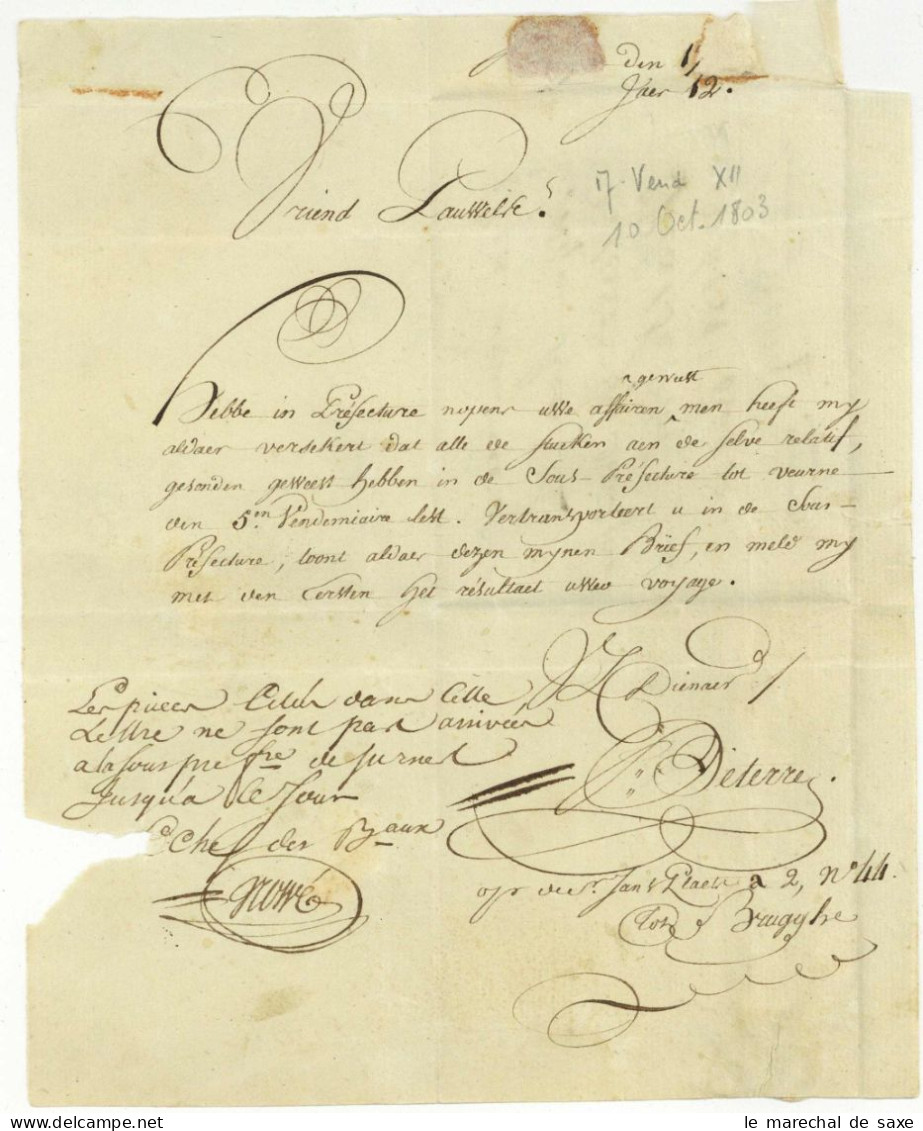 den 1/
Jaer 12.
Vriend Pauwelse.
17 Vend XII
10 Oct. 1803
geweest
Hebbe in Préfecture nopens uwe affairen ^ men heeft my
aldaer versekert dat alle de stucken aen de selve relatif,
gesonden geweest hebben in de Sous-Préfecture tot veurne
den 5en Vendemiaire lest. Vertransporteert u in de Sous-
Préfecture, toont aldaer dezen mynen Brief, en meld my
met den Eersten het résultaet uwer voyage.
Dienaer
Deterre.
Les pieces Citées dans Cette
Lettre ne sont pas arrivées
a la sous prefre de furnes
Jusqu'a Ce Jour
Chef des Baux
op de St. Jans Plaets a 2, No 44
tot Brugghe
le marechal de saxe